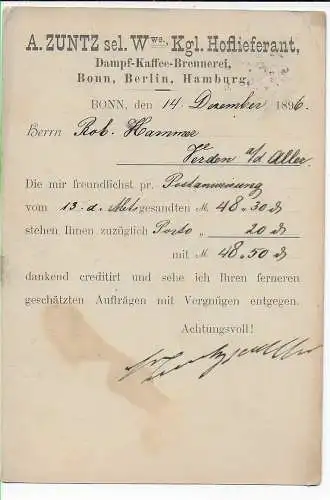 A. ZUNTZ sel. Wwe., Kgl. Hoflieferant,
Dampf-Kaffee-Brennerei,
Bonn, Berlin, Hamburg.
BONN, den 14 Dezember 1896
Herrn Rob. Hammer
Verden a/d Aller
Die mir freundlichst pr. Postanweisung
vom 13. d. Mts gesandten M. 48.30 ₰
stehen Ihnen zuzüglich Porto 20 ₰
mit M. 48.50 ₰
dankend creditirt und sehe ich Ihren ferneren
geschätzten Aufträgen mit Vergnügen entgegen.
Achtungsvoll!